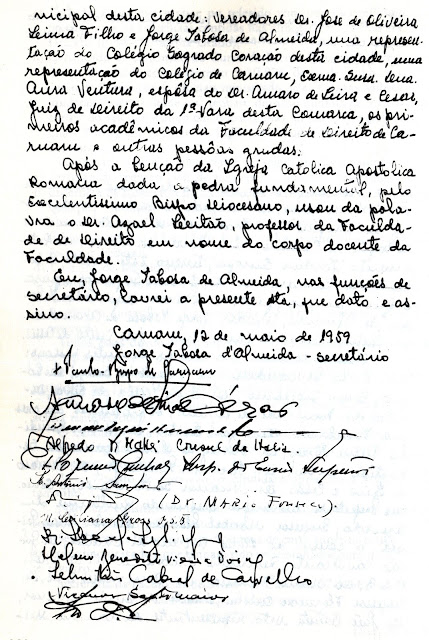 nicipal desta cidade: Vereadores Dr. José de Oliveira
Lima Filho e Jorge Tabosa de Almeida, uma represen-
tação do Colégio Sagrado Coração desta cidade, uma
representação do Colégio de Caruaru, Exma. Snra. Dna.
Aura Ventura, espôsa do Dr. Amaro de Lira e Cesar,
Juiz de Direito da 1ª Vara desta Comarca, os pri-
meiros acadêmicos da Faculdade de Direito de Ca-
ruaru e outras pessôas gradas.
Após a benção da Igreja Católica Apostólica
Romana dada a pedra fundamental, pelo
Excelentissimo Bispo Diocesano, usou da pala-
vra o Dr. Azael Leitão, professor da Faculda-
de de Direito em nome do corpo docente da
Faculdade.
Eu, Jorge Tabosa de Almeida, nas funções de
secretário, lavrei a presente ata, que dato e as-
sino.
Caruaru, 12 de maio de 1959
Jorge Tabosa d'Almeida - secretário
+ Paulo - Bispo de Caruaru
Amaro de Lira e Cezar
Alfredo Consul da Italia
Insp. do Ensino
Antonio
(Dr. Mario Fonseca)
Benedito Vieira
Cabral de Carvalho